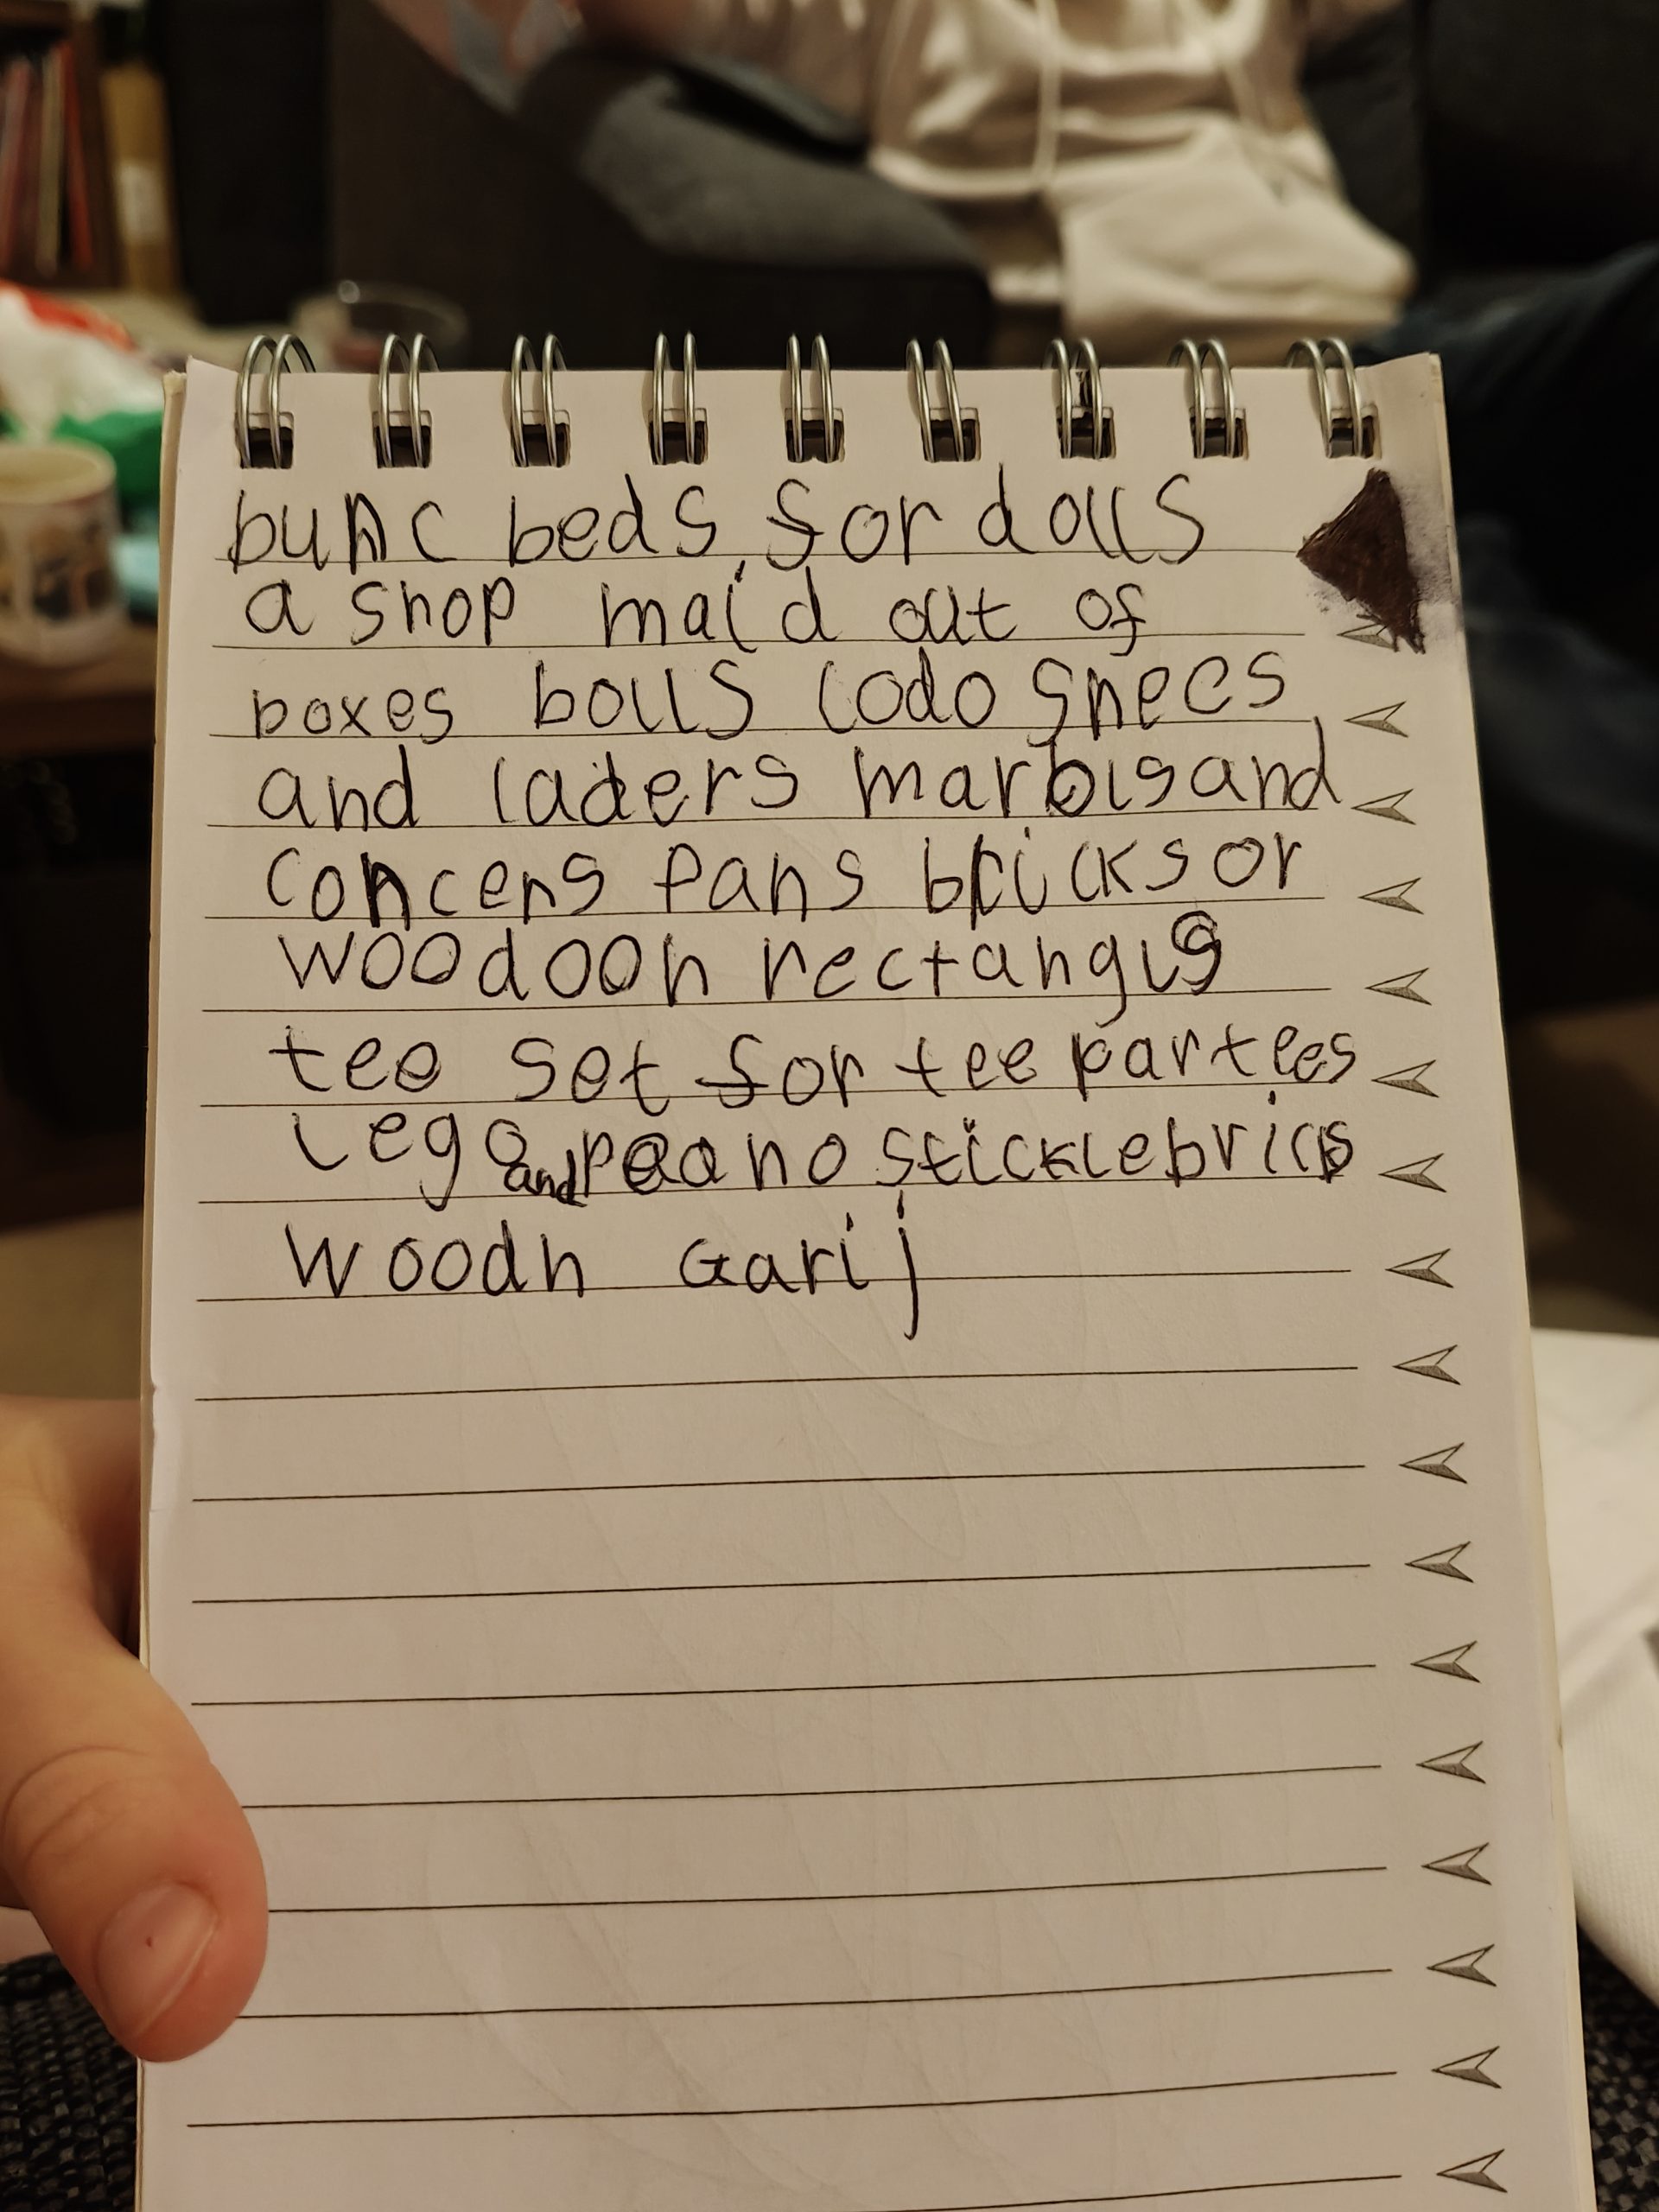 bunc beds for dolls
a shop maid out of
boxes bolls lodo snecs
and laders marbls and
concers pans bricks or
woodoon rectangls
tee set for tee partees
Lego and peano sticklebrics
woodn Garij